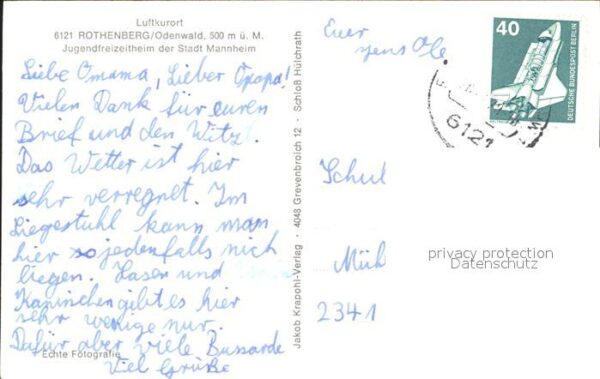 Luftkurort
6121 ROTHENBERG/Odenwald, 500 m ü. M.
Jugendfreizeitheim der Stadt Mannheim
Liebe Omama, Lieber Opapa!
Vielen Dank für euren
Brief und den Witz.
Das Wetter ist hier
sehr verregnet. Im
Liegestuhl kann man
hier so jedenfalls nich
liegen. Hasen und
Kaninchen gibt es hier
sehr wenige nur.
Dafür aber viele Bussarde
Viel Grüße
Echte Fotografie
Jakob Krapohl-Verlag · 4048 Grevenbroich 12 · Schloß Hülchrath
Euer
Jens Ole
40
DEUTSCHE BUNDESPOST BERLIN
6121
Schul
Müh
2341
privacy protection
Datenschutz